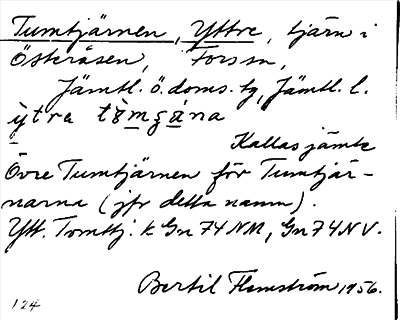 Tumtjärnen, Yttre, tjärn i
Österåsen, Fors sn,
Jämtl. ö. doms. tg, Jämtl. l.
ỳtra tömʂána
Kallas jämte
Övre Tumtjärnen för Tumtjär-
narna (jfr detta namn).
Ytt. Tomttj. k Gn 74 NM, Gn 74 NV.
Bertil Flemström 1956.
124